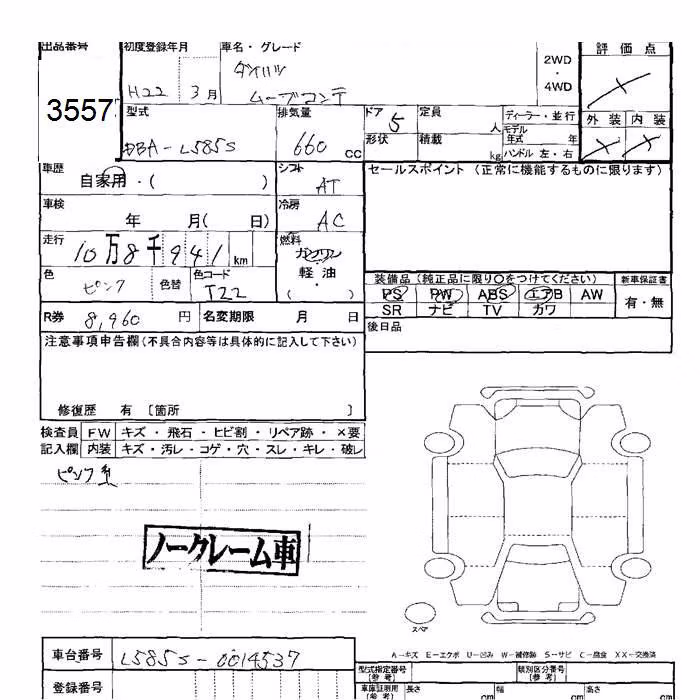 出品番号 初度登録年月 車名・グレード 2WD・4WD 評価点
3557 H22 3月 ダイハツ ムーブコンテ
型式 排気量 ドア 定員 人 ディーラー・並行 外装 内装
DBA-L585S 660 CC 5 形状 積載 kg モデル年式 年 ハンドル 左・右
車歴 自家用・( ) シフト AT セールスポイント (正常に機能するものに限ります)
車検 年 月( 日) 冷房 AC
走行 10万8千941 km 燃料 ガソリン 軽油・( )
色 ピンク 色替 色コード T22
装備品 (純正品に限り○をつけてください) 新車保証書
PS PW ABS エアB AW 有・無
SR ナビ TV カワ
R券 8,960 円 名変期限 月 日 後日品
注意事項申告欄(不具合内容等は具体的に記入して下さい)
修復歴 有 〔箇所 〕
検査員 FW キズ・飛石・ヒビ割・リペア跡・×要
記入欄 内装 キズ・汚レ・コゲ・穴・スレ・キレ・破レ
ノークレーム車
スペア
A-キズ E-エクボ U-凹み W-補修跡 S-サビ C-腐食 XX-交換済
車台番号 L585S-0014537
型式指定番号(参考) 類別区分番号(参考)
登録番号 車庫証明用(参考) 長さ cm 幅 cm 高さ cm